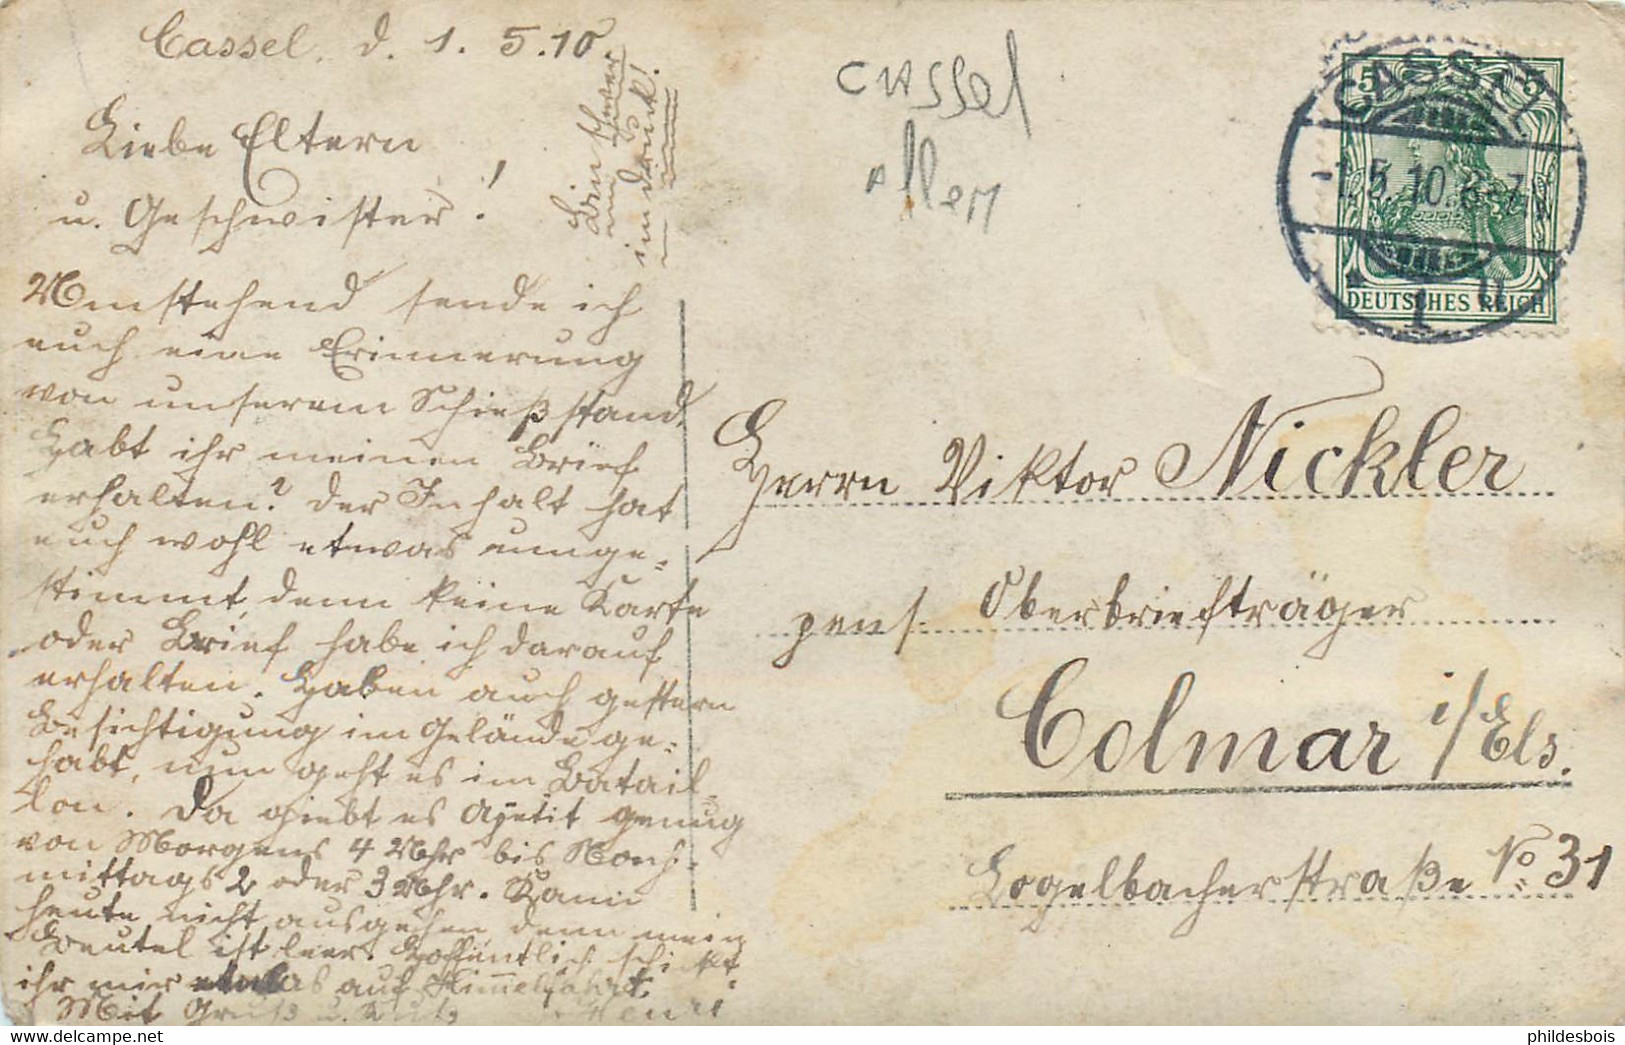 Cassel, d. 1. 5. 10
Liebe Eltern
u. Geschwister!
Umstehend sende ich
euch eine Erinnerung
von unserem Schießstand.
Habt ihr meinen Brief
erhalten? Der Inhalt hat
euch wohl etwas umge-
stimmt, denn keine Karte
oder Brief habe ich darauf
erhalten. Haben auch gestern
Besichtigung im Gelände ge-
habt, nun geht es im Batail-
lon. Da giebt es Apetit genug
von Morgens 4 Uhr bis Nach-
mittags 2 oder 3 Uhr. Kann
heute nicht ausgehen denn mein
Beutel ist leer. Hoffentlich schickt
ihr mir etwas auf Himmelfahrt.
Mit Gruß u. Kuß Henri
Bin schwer
in Druck!
Cassel
Allem
CASSEL
1.5.10. 6-7 N
1
5 5
DEUTSCHES REICH
Herrn Viktor Nickler
pens. Oberbriefträger
Colmar i/Els.
Logelbacherstraße No 31
phildesbois.com